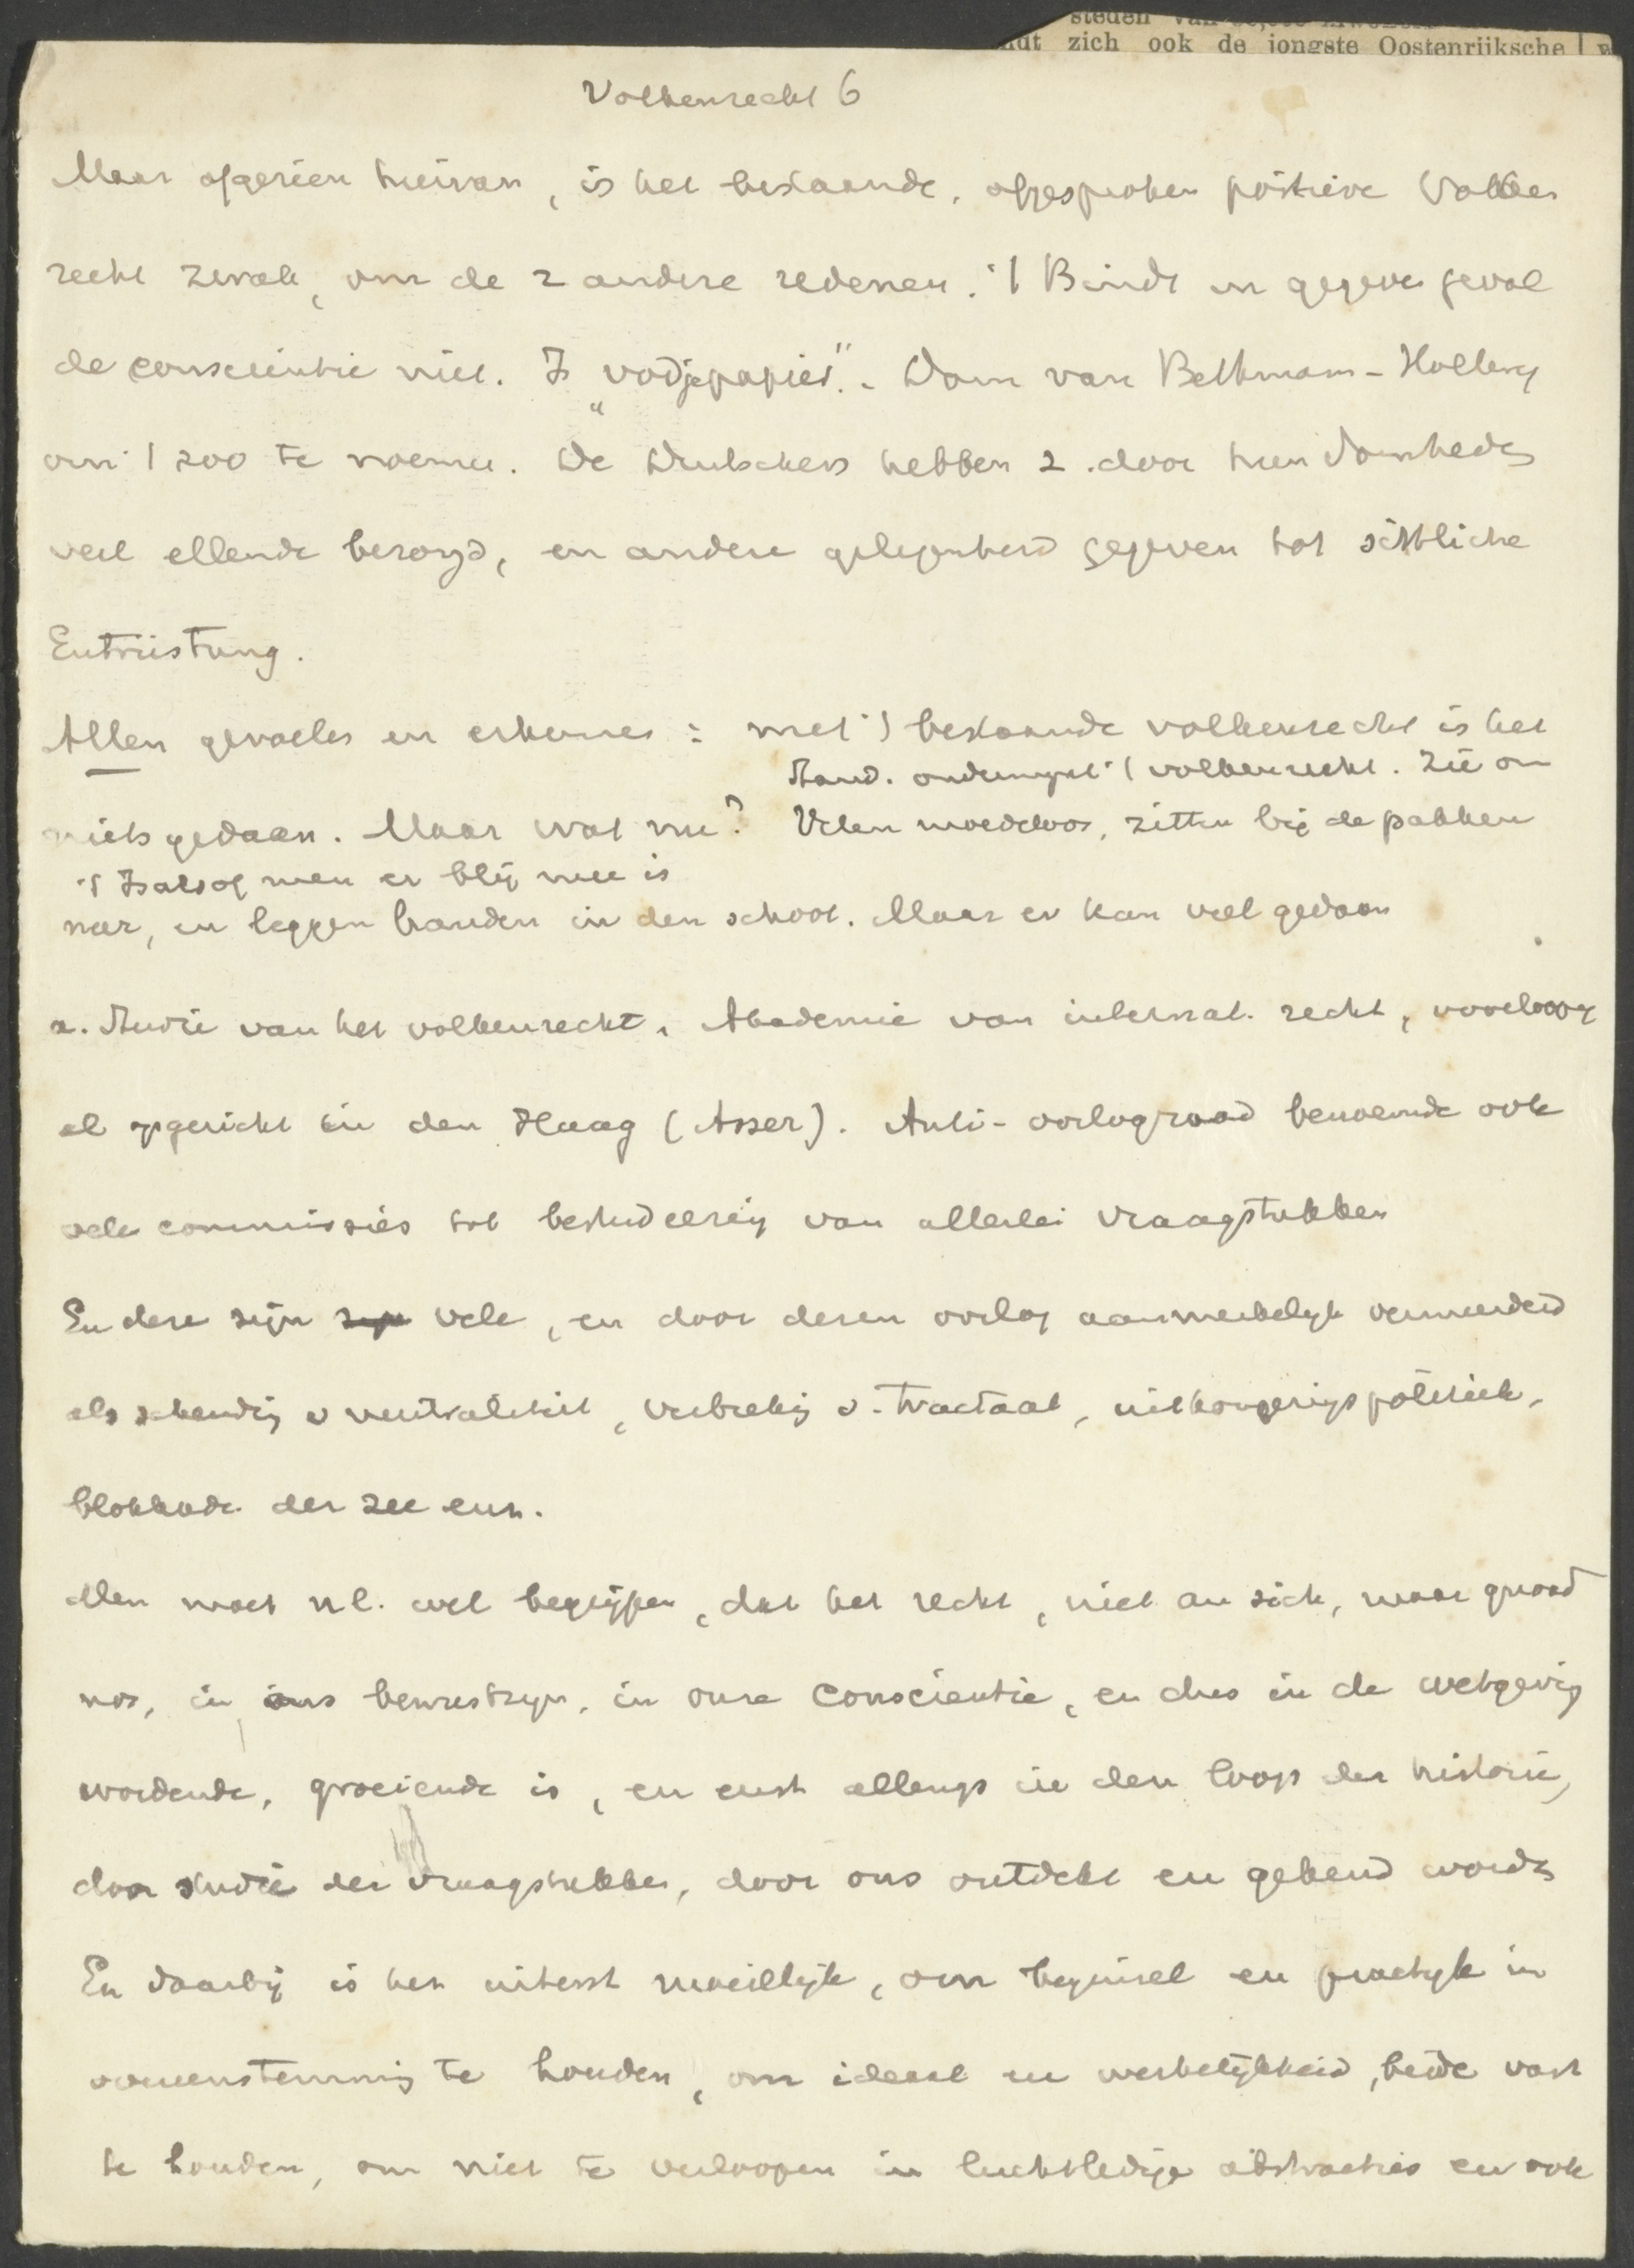 steden van
ndt zich ook de jongste Oostenrijksche
Volkenrecht 6
Maar afgezien hiervan, is het bestaande, afgesproken positieve Volken
recht zwak, om de 2 andere redenen. 't Bindt in gegeven geval
de conscientie niet. Is "vodje papier". Dom van Bethmann-Hollweg
om 't zoo te noemen. De Duitschers hebben z. door hun domheden
veel ellende bezorgd, en andere gelegenheid gegeven tot sittliche
Entrüstung.
Allen gevoelen en erkennen: met 't bestaande volkenrecht is het
Stand. ondermijnt 't volkenrecht. Zie on
niets gedaan. Maar wat nu? Velen moedeloos, zitten bij de pakken
't Is alsof men er blij mee is
neer, en leggen handen in den schoot. Maar er kan veel gedaan
a. Studie van het volkenrecht. Akademie van internat. recht, vooroorlog
al opgericht in den Haag (Asser). Anti-oorlograad benoemde ook
vele commissies tot bestudeering van allerlei vraagstukken
En deze zijn vele, en door dezen oorlog aanmerkelijk vermeerderd
als schending v neutraliteit, verbreking v. tractaat, uithongeringspolitiek,
blokkade der zee enz.
Men moet nl. wel begrijpen, dat het recht, niet an sich, maar quoad
nos, in ons bewustzijn, in onze conscientie, en dus in de wetgeving
wordende, groeiende is, en eerst allengs in den loop der historie,
door studie der vraagstukken, door ons ontdekt en gekend wordt
En daarbij is het uiterst moeilijk, om beginsel en practijk in
overeenstemming te houden, om ideaal en werkelijkheid, beide vast
te houden, om niet te verloopen in luchtledige abstracties en ook